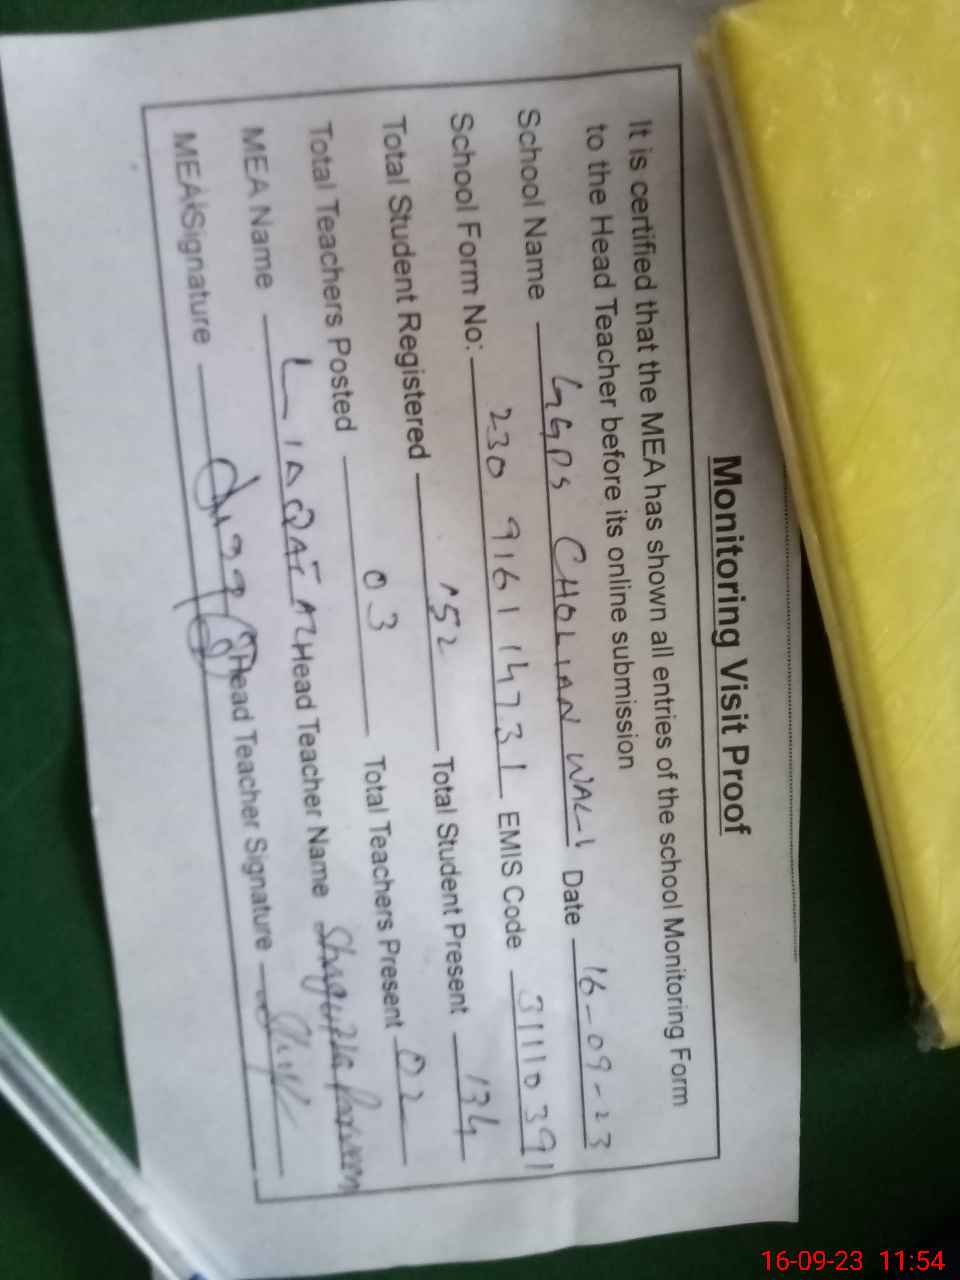 Monitoring Visit Proof
It is certified that the MEA has shown all entries of the school Monitoring Form
to the Head Teacher before its online submission
School Name GGPS CHOLIAN WALI Date 16-09-23
School Form No: 230 9161 14731 EMIS Code 31110391
Total Student Registered 152 Total Student Present 134
Total Teachers Posted 03 Total Teachers Present 02
MEA Name LIAQAT Head Teacher Name Shagufta Parveen
MEA Signature Head Teacher Signature
16-09-23 11:54